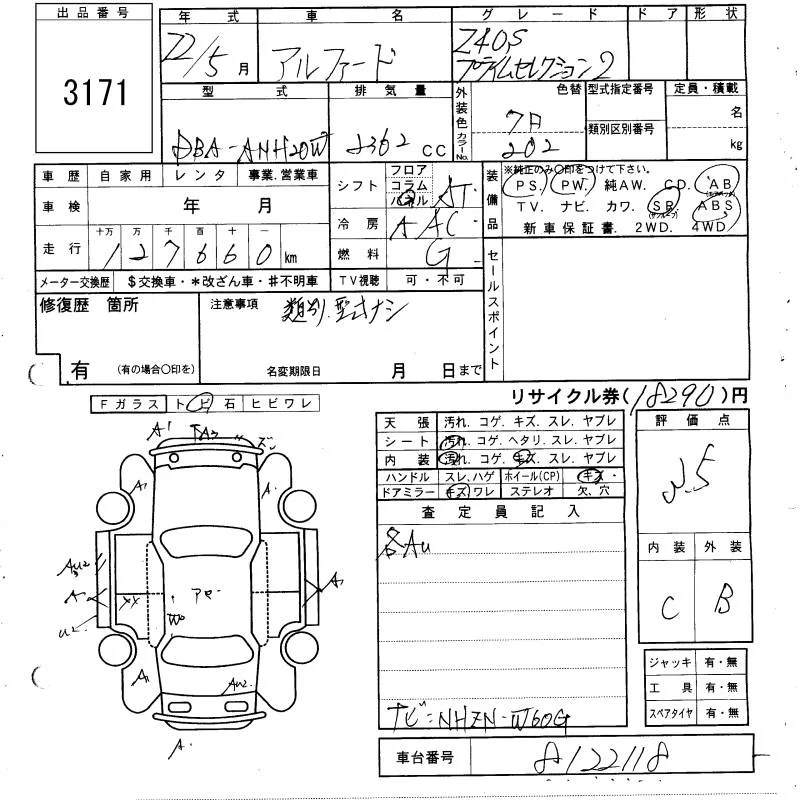 出品番号
3171
年式 車名 グレード ドア 形状
22/5月 アルファード 240S
プライムセレクション2
型式 排気量 外装色 カラーNo. 色替 型式指定番号 定員・積載
DBA-ANH20W 2362 cc 202 類別区別番号 名
kg
車歴 自家用 レンタ 事業.営業車
車検 年 月
走行 十万 万 千 百 十
127660 km
メーター交換歴 $交換車・*改ざん車・#不明車
シフト フロア コラム パネル AT
冷房 AAC
燃料 G
TV視聴 可・不可
装備品 ※純正のみ〇印をつけて下さい。
PS. PW. 純AW. CD. AB (エアバッグ)
TV. ナビ. カワ. SR. (サンルーフ) ABS
新車保証書. 2WD. 4WD
セールスポイント
修復歴 箇所
有 (有の場合〇印を)
注意事項 類別.型式ナシ
名変期限日 月 日まで
リサイクル券(18290)円
Fガラス トビ石 ヒビワレ
天張 汚れ. コゲ. キズ. スレ. ヤブレ
シート 汚れ. コゲ. ヘタリ. スレ. ヤブレ
内装 汚れ. コゲ. キズ. スレ. ヤブレ
ハンドル スレ.ハゲ ホイール(CP) キズ・
ドアミラー キズ ワレ ステレオ 欠.穴
査定員記入
各Au
ナビ=NHZN-W60G
評価点
内装 外装
C B
ジャッキ 有・無
工具 有・無
スペアタイヤ 有・無
車台番号 8122118
A1 A3 ズン
A1 A
Au2
A
U2
XX
W
A1
Au2
A